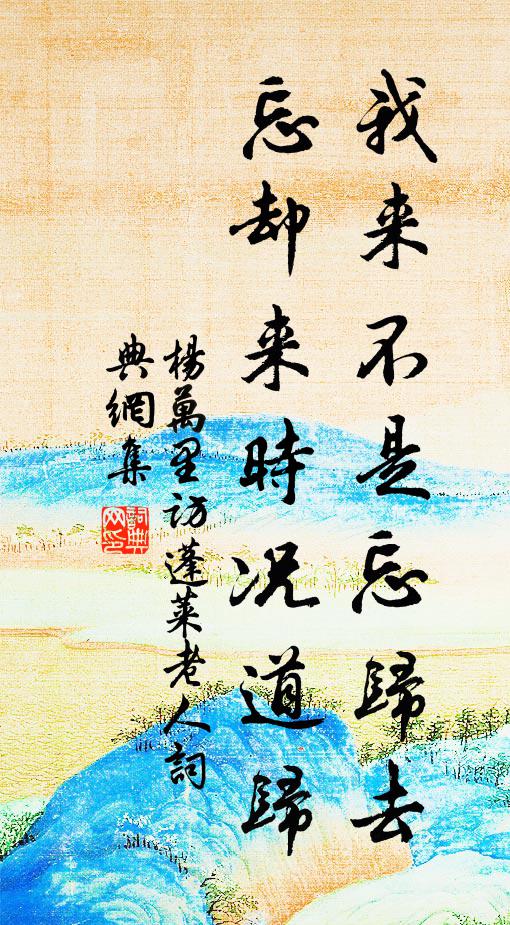 我来不是忘歸去
忘却来時况道歸
楊萬里訪蓬萊老人詞
典網集
詞典网印